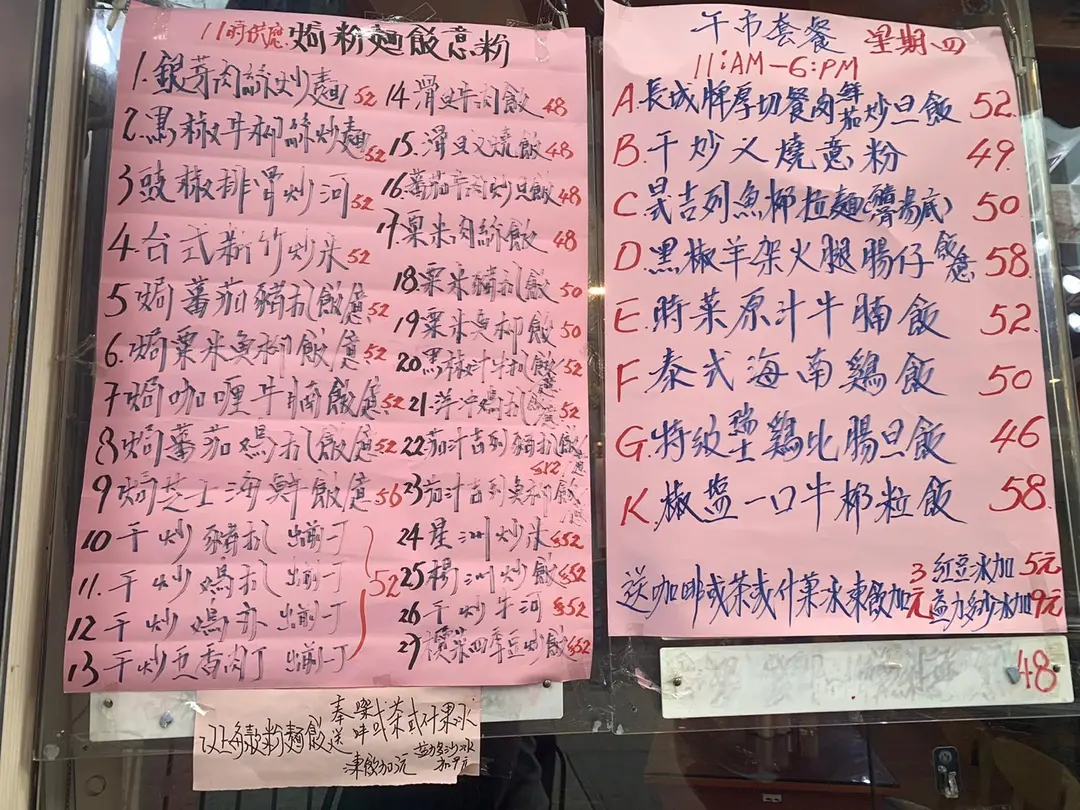 11時供應 焗粉麵飯意粉
1.銀芽肉絲炒麵 52
2.黑椒牛柳絲炒麵 52
3豉椒排骨炒河 52
4.台式新竹炒米 52
5焗蕃茄豬扒飯意 52
6.焗粟米魚柳飯意 52
7焗咖喱牛腩飯意 52
8焗蕃茄鸡扒飯意 52
9焗芝士海鮮飯意 56
10干炒豬扒出前一丁
11.干炒鸡扒出前一丁
12干炒鸡亦出前一丁
13干炒五香肉丁出前一丁
52
14滑旦牛肉飯 48
15.滑旦义燒飯 48
16.蕃茄牛肉炒旦飯 48
17.粟米肉絲飯 48
18.粟米豬扒飯 50
19粟米魚柳飯 50
20黑椒汁牛扒飯意 52
21.洋沖鸡扒飯意 52
22.茄汁吉列豬扒飯意 $52
23茄汁吉列魚柳飯意
24星洲炒米 $52
25楊洲炒飯 $52
26干炒牛河 $52
27欖菜四季豆炒飯 $52
以上各款粉麵飯
奉送
啡或茶或什果冰
凍飲加元
益力多沙冰
加9元
午市套餐 星期四
11:AM-6:PM
A.長城牌厚切餐肉鲜茄炒旦飯 52.
B.干炒义燒意粉 49
C.吉列魚柳拉麵(湯底) 50
D.黑椒羊架火腿腸仔飯意 58.
E.時菜原汁牛腩飯 52.
F.泰式海南鷄飯 50
G.特级瑞士鷄比腸旦飯 46
K.椒塩一口牛柳粒飯 58.
送咖啡或茶或什菓冰凍飲加3元
紅豆冰加5元
益力多沙冰加9元
48